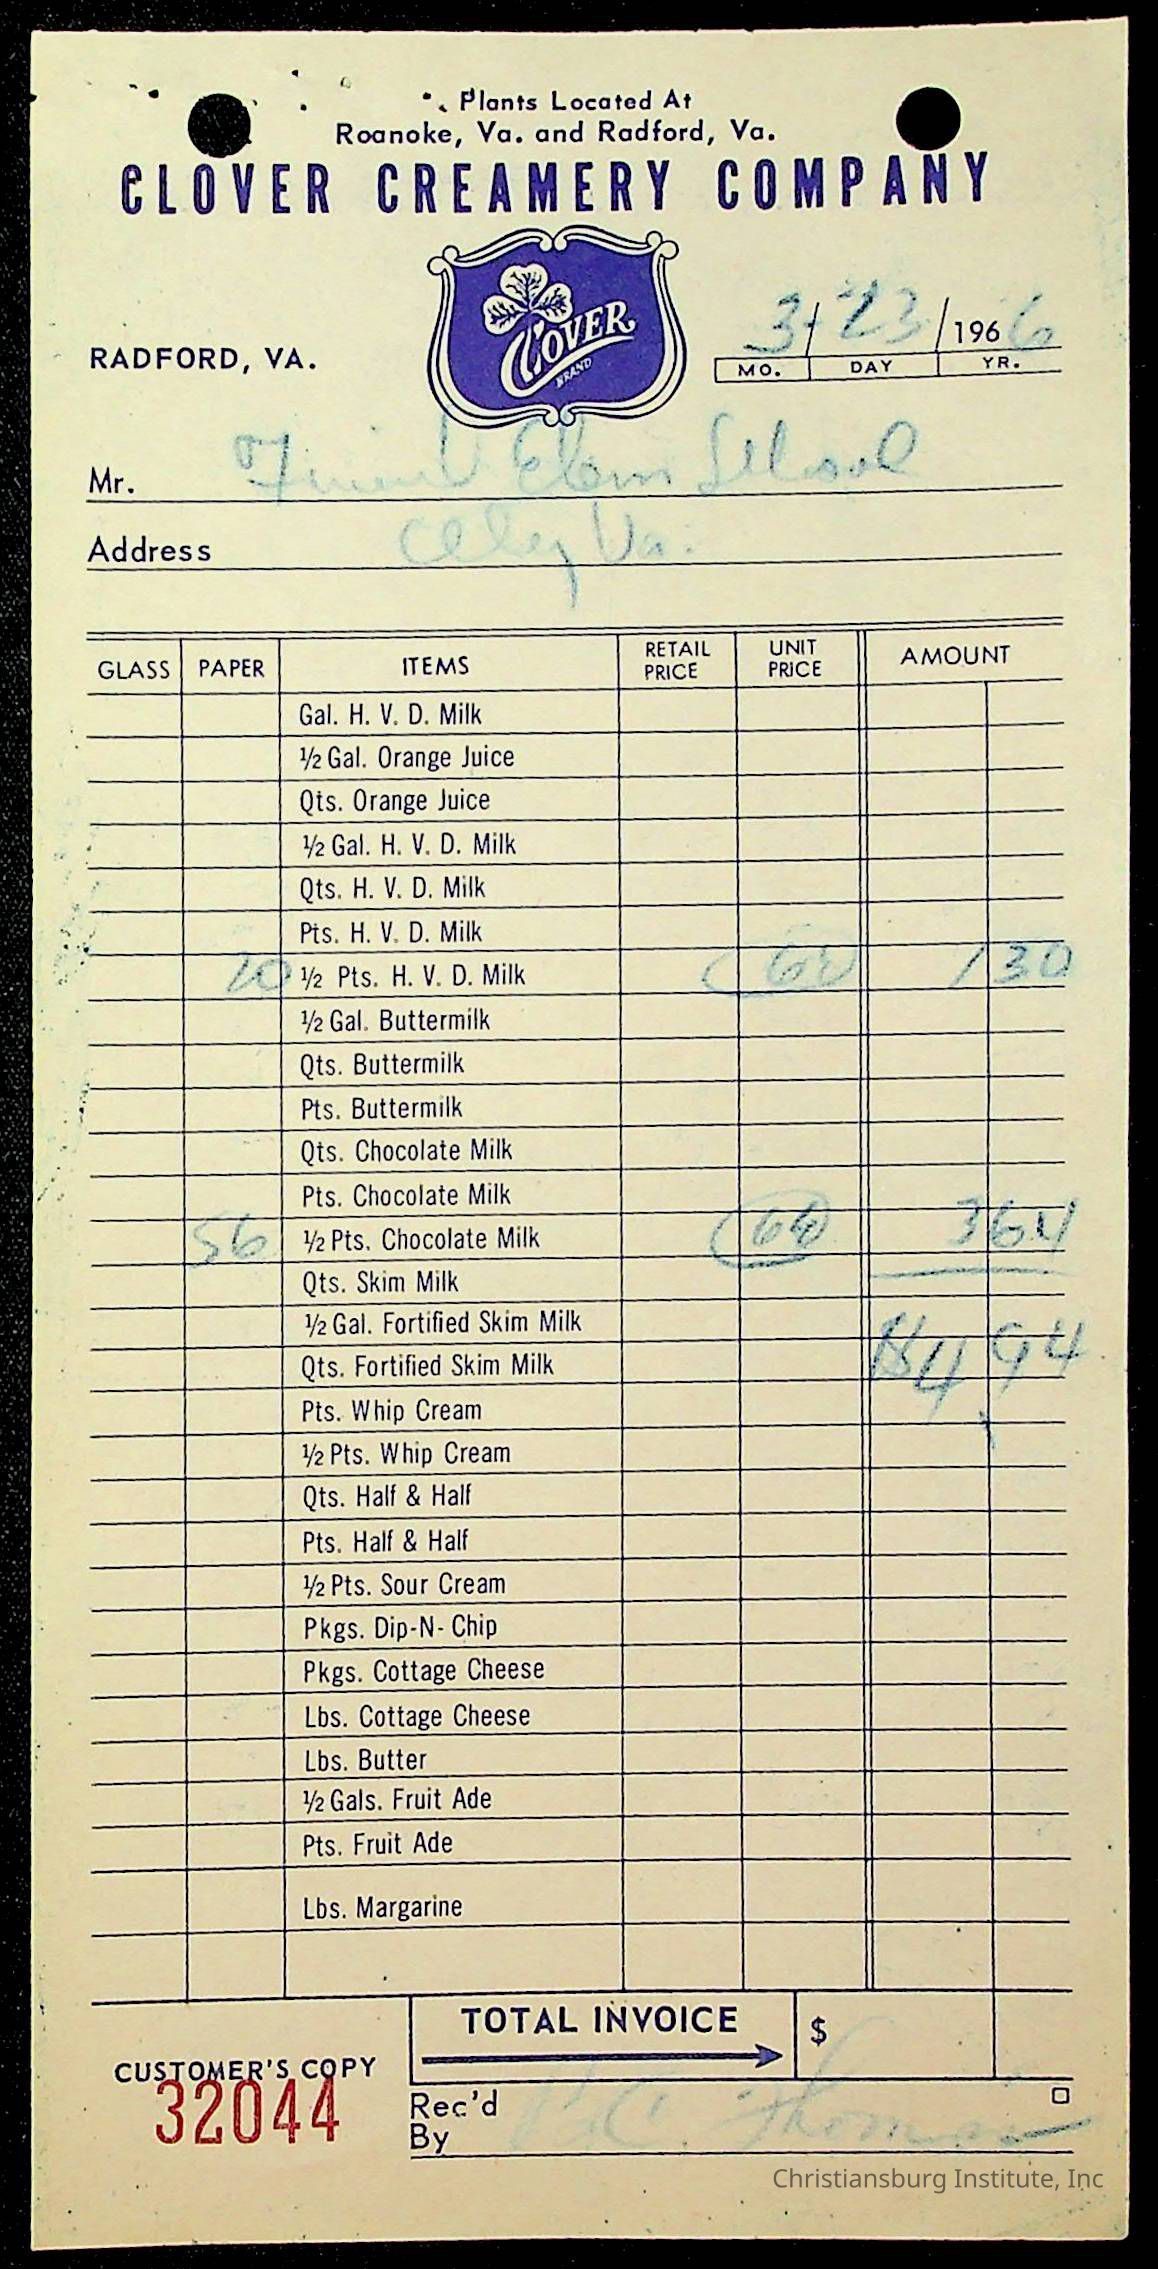 Plants Located At
Roanoke, Va. and Radford, Va.
CLOVER CREAMERY COMPANY
CLOVER
BRAND
RADFORD, VA.
3/23/1966
MO. DAY YR.
Mr. Elem School
Address Va.
GLASS PAPER ITEMS RETAIL PRICE UNIT PRICE AMOUNT
Gal. H. V. D. Milk
½ Gal. Orange Juice
Qts. Orange Juice
½ Gal. H. V. D. Milk
Qts. H. V. D. Milk
Pts. H. V. D. Milk
20 ½ Pts. H. V. D. Milk 1 30
½ Gal. Buttermilk
Qts. Buttermilk
Pts. Buttermilk
Qts. Chocolate Milk
Pts. Chocolate Milk
56 ½ Pts. Chocolate Milk 3 64
Qts. Skim Milk
½ Gal. Fortified Skim Milk
Qts. Fortified Skim Milk $4.94
Pts. Whip Cream
½ Pts. Whip Cream
Qts. Half & Half
Pts. Half & Half
½ Pts. Sour Cream
Pkgs. Dip-N-Chip
Pkgs. Cottage Cheese
Lbs. Cottage Cheese
Lbs. Butter
½ Gals. Fruit Ade
Pts. Fruit Ade
Lbs. Margarine
TOTAL INVOICE $
CUSTOMER'S COPY
32044
Rec'd By C. Thomas
Christiansburg Institute, Inc